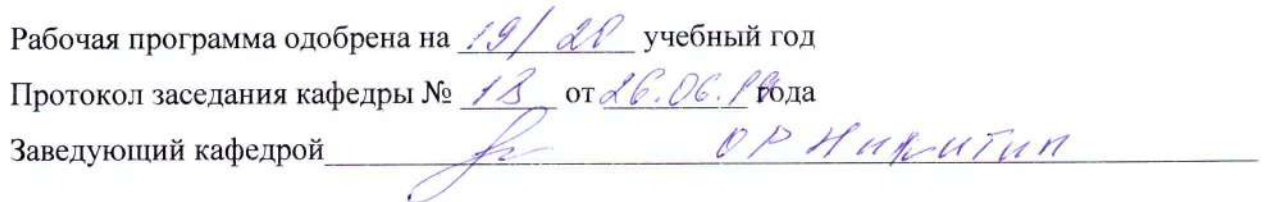 Рабочая программа одобрена на 19/20 учебный год
Протокол заседания кафедры № 13 от 26.06.19 года
Заведующий кафедрой ОР Никитин